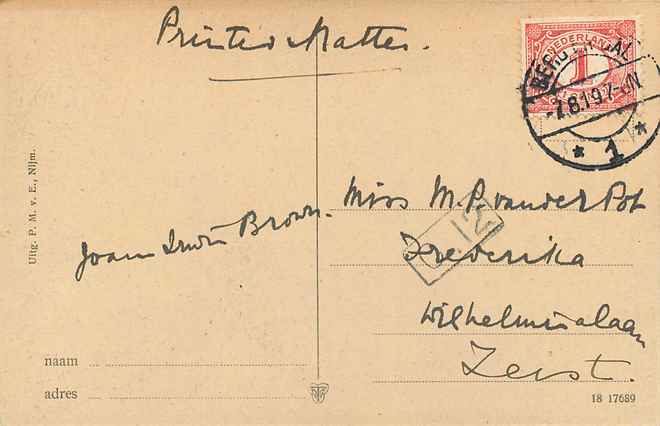 Printed Matter.
NEDERLAND
1
BERG EN DAL
-7.8.19 7-8N
* 1 *
Uitg. P. M. v. E., Nijm.
Miss M. P. van der Pot
Joan Irwin Brown.
Frederika
Wilhelminalaan
Zeist.
naam
adres
18 17689